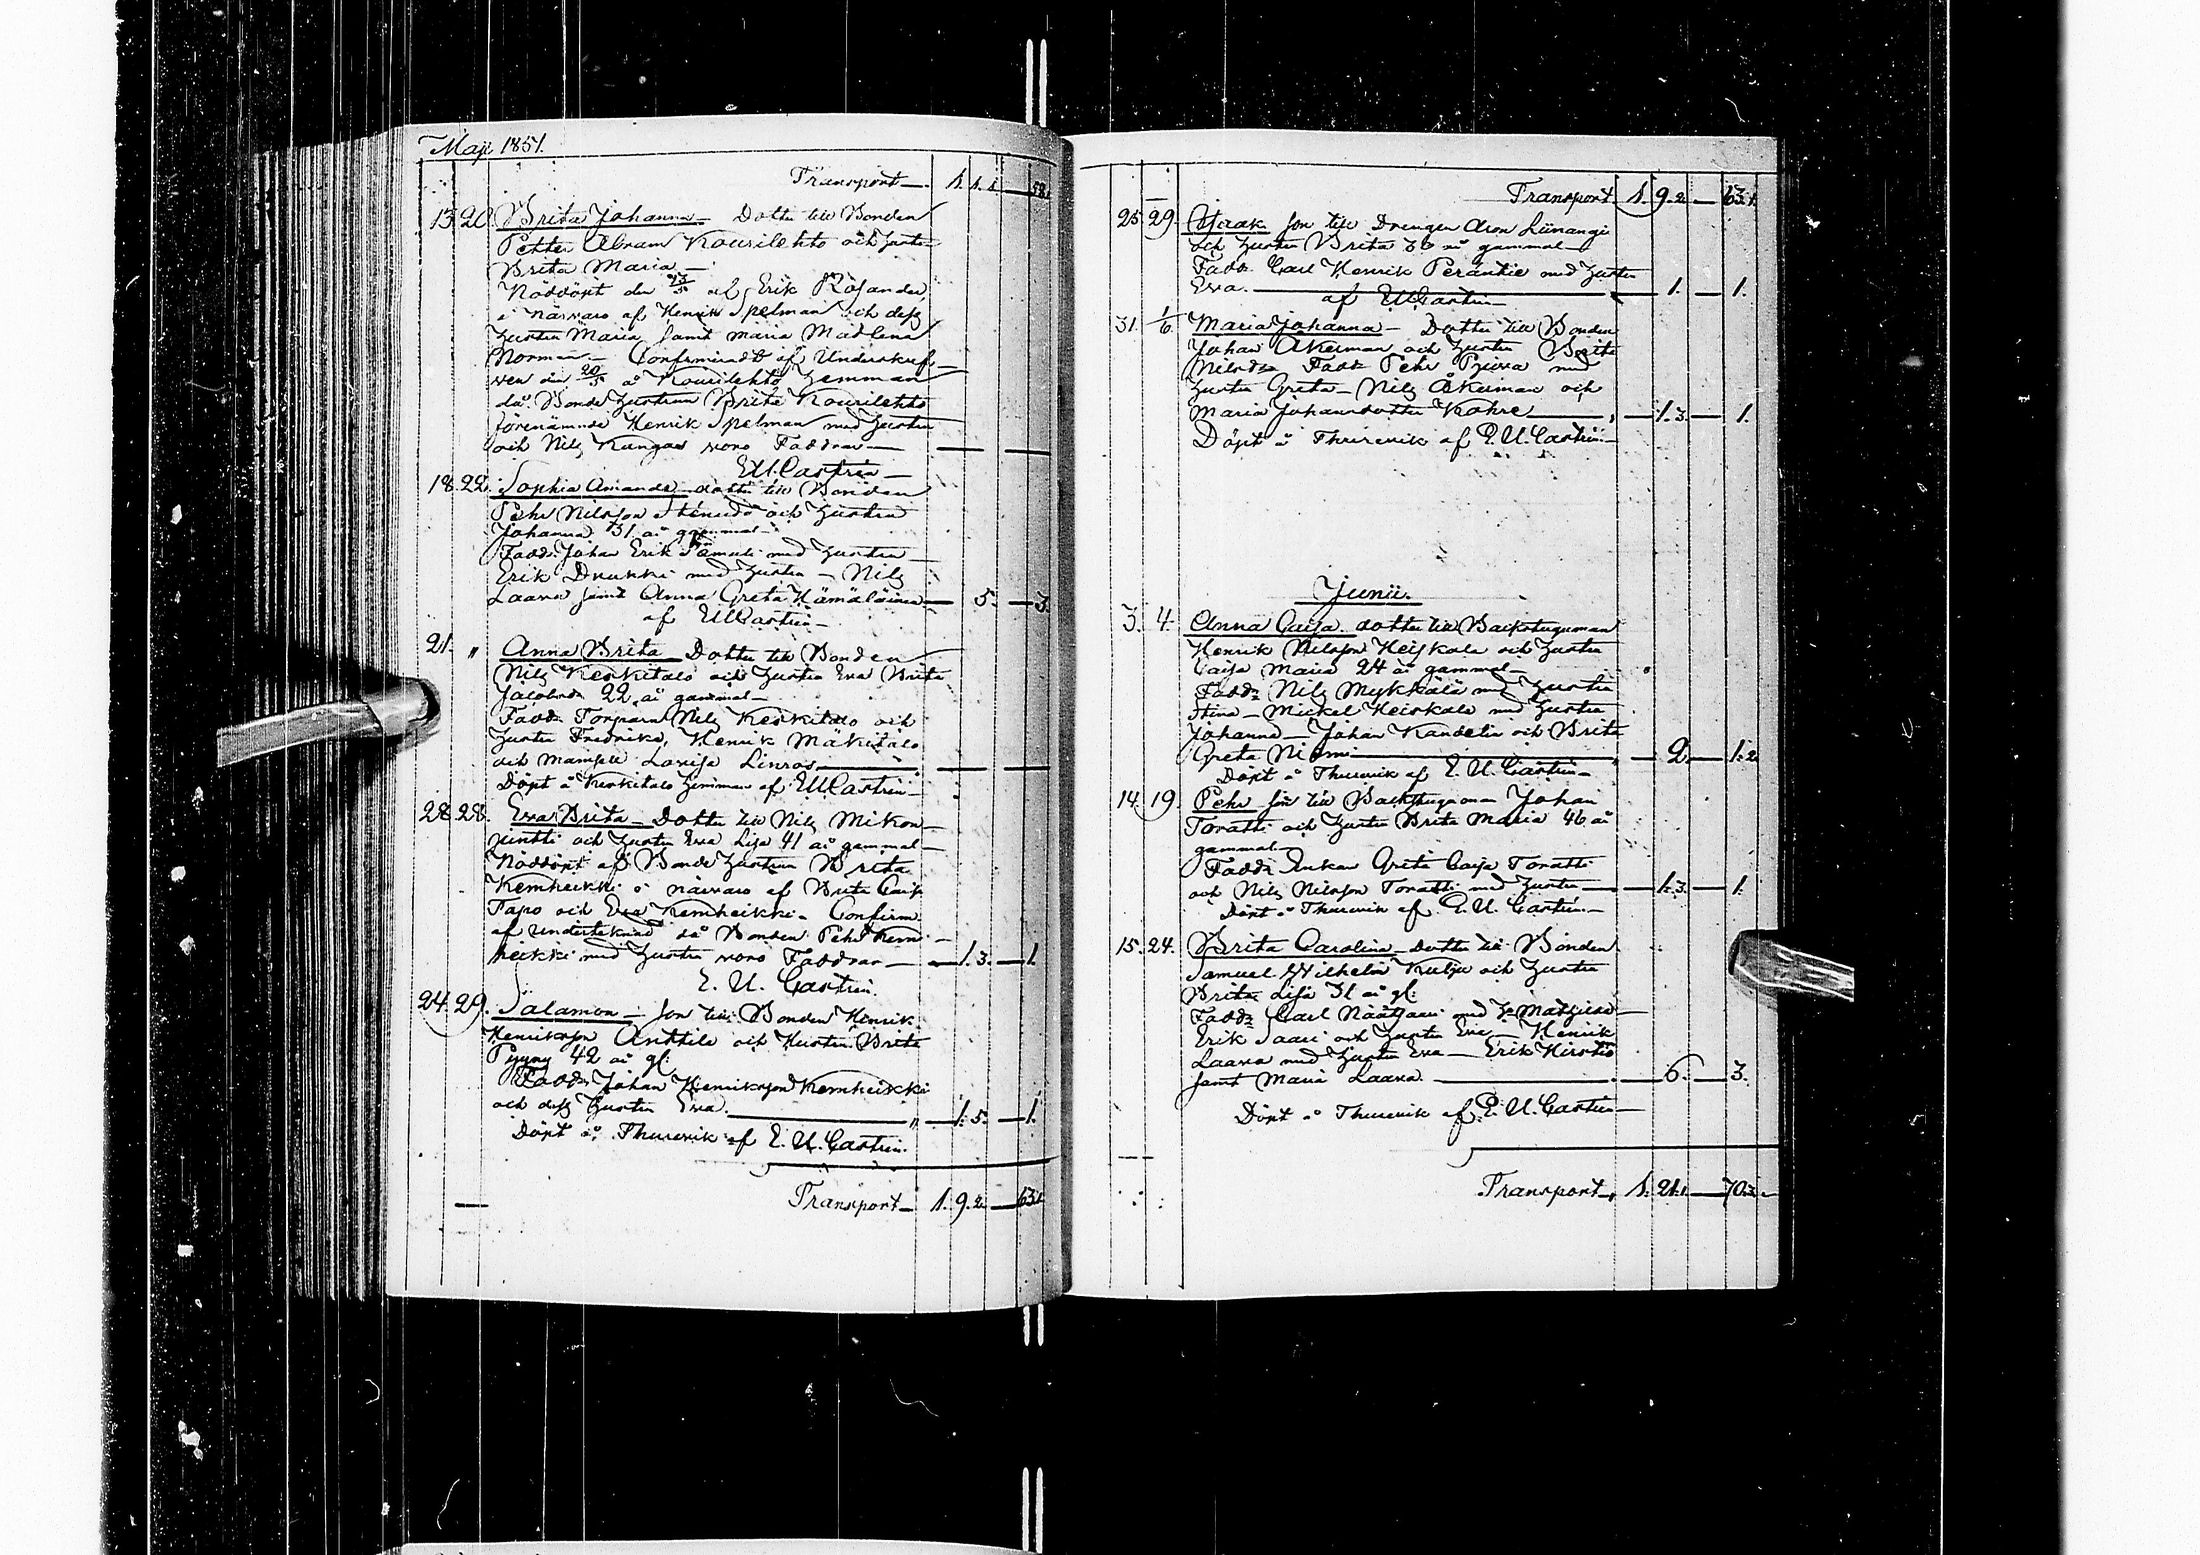 Maji 1851.
Transport — 1. 1. 1 — 58.
13. 20. Brita Johanna — Dotter till Bonden
Petter Abram Kourilehto och hustr.
Brita Maria —
Nöddöpt den 13/5 af Erik Rosander,
i närvaro af Henrik Spelman och dess
hustru Maria, samt Maria Madlena
Norman — Confirmeradt af Underskref-
ven den 20/5 å Kourilehto hemman
då Bonde hustrun Brita Kourilehto
förenämnde Henrik Spelman med hustru
och Nils Kangas voro Faddrar —
E.U. Castrén —
18. 22. Sophia Amanda dotter till Bonden
Pehr Nilsson och hustru
Johanna 31 år gammal
Fadd. Johan Erik med hustru
Erik Drukki med hustru — Nils
Laava samt Anna Greta Hämäläinen — 5. — 3.
af E.U. Castrén —
21. " Anna Brita Dotter till Bonden
Nils Keskitalo och hustru Eva Brita
Jacobsdr 22 år gammal —
Fadd. Torparn Nils Keskitalo och
hustru Fredrika, Henrik Mäkitalo
och Mamsell Lovisa Linros —
Döpt å Keskitalo hemman af E.U. Castrén —
28. 28. Eva Brita — Dotter till Nils Mikon-
juntti och hustru Eva Lisa 41 år gammal —
Nöddöpt af Bonde hustrun Brita
Kemheikki i närvaro af Brita Caisa
Tapo och Eva Kemheikki — Confirm.
af undertecknad då Bonden Pehr Kem-
heikki med hustru voro Faddrar — 1. 3. — 1.
E. U. Castrén.
24. 29. Salamon — son till Bonden Henrik
Henriksson Anttila och Hustru Brita
Pyyny 42 år gl:
Fadd. Johan Henriksson Kemheikki
och dess hustru Eva — " — 1. 5. — 1.
Döpt å Thurevik af E. U. Castrén.
Transport — 1. 9. 2. — 63.1.
Transport 1. 9. 2. — 63.1.
25. 29. Isaak son till Drengen Aron Liinangi
och hustru Brita 36 år gammal —
Fadd. Carl Henrik Peräntie med hustru
Eva. — 1. — 1.
af E.U. Castrén —
31. 1/6. Maria Johanna — Dotter till Bonden
Johan Åkerman och hustru Brita
Nilsdr. Fadd. Pehr med
hustru Greta — Nils Åkerman och
Maria Johansdotter Kohre — 1. 3. — 1.
Döpt å Thurevik af E. U. Castrén —
Junii.
3. 4. Anna Caisa dotter till Backstuguman
Henrik Nilsson Heiskala och hustru
Caisa Maria 24 år gammal —
Fadd. Nils Mykkälä med hustru
Stina — Mickel Heiskala med hustru
Johanna — Johan Kandelin och Brita
Greta Niemi — 2. — 1. 2
Döpt å Thurevik af E. U. Castrén —
14. 19. Pehr son till Backstuguman Johan
Toratti och hustru Brita Maria 46 år
gammal —
Fadd. Enkan Greta Caisa Toratti
och Nils Nilsson Toratti med hustru — 1. 3. — 1.
Döpt å Thurevik af E. U. Castrén. —
15. 24. Brita Carolina — dotter till Bonden
Samuel Wilhelm och hustru
Brita Lisa 31 år gl:
Fadd. Carl med
Erik Saari och hustru Eva — Henrik
Laava med hustru Eva — Erik
samt Maria Laava. — 6. — 3.
Döpt å Thurevik af E. U. Castrén —
Transport, 1. 21. 1. — 70.3. —